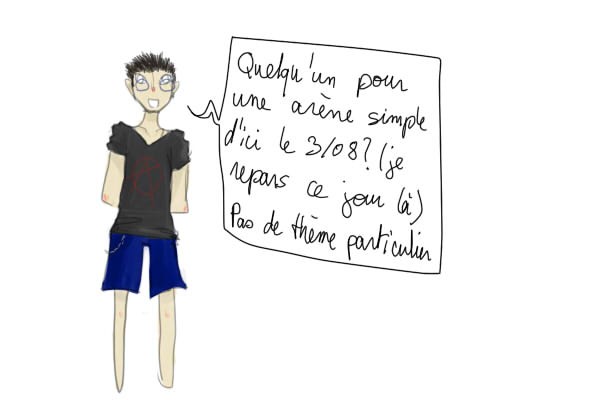 Quelqu'un pour
une arène simple
d'ici le 3/08? (je
repars ce jour là)
Pas de thème particulier